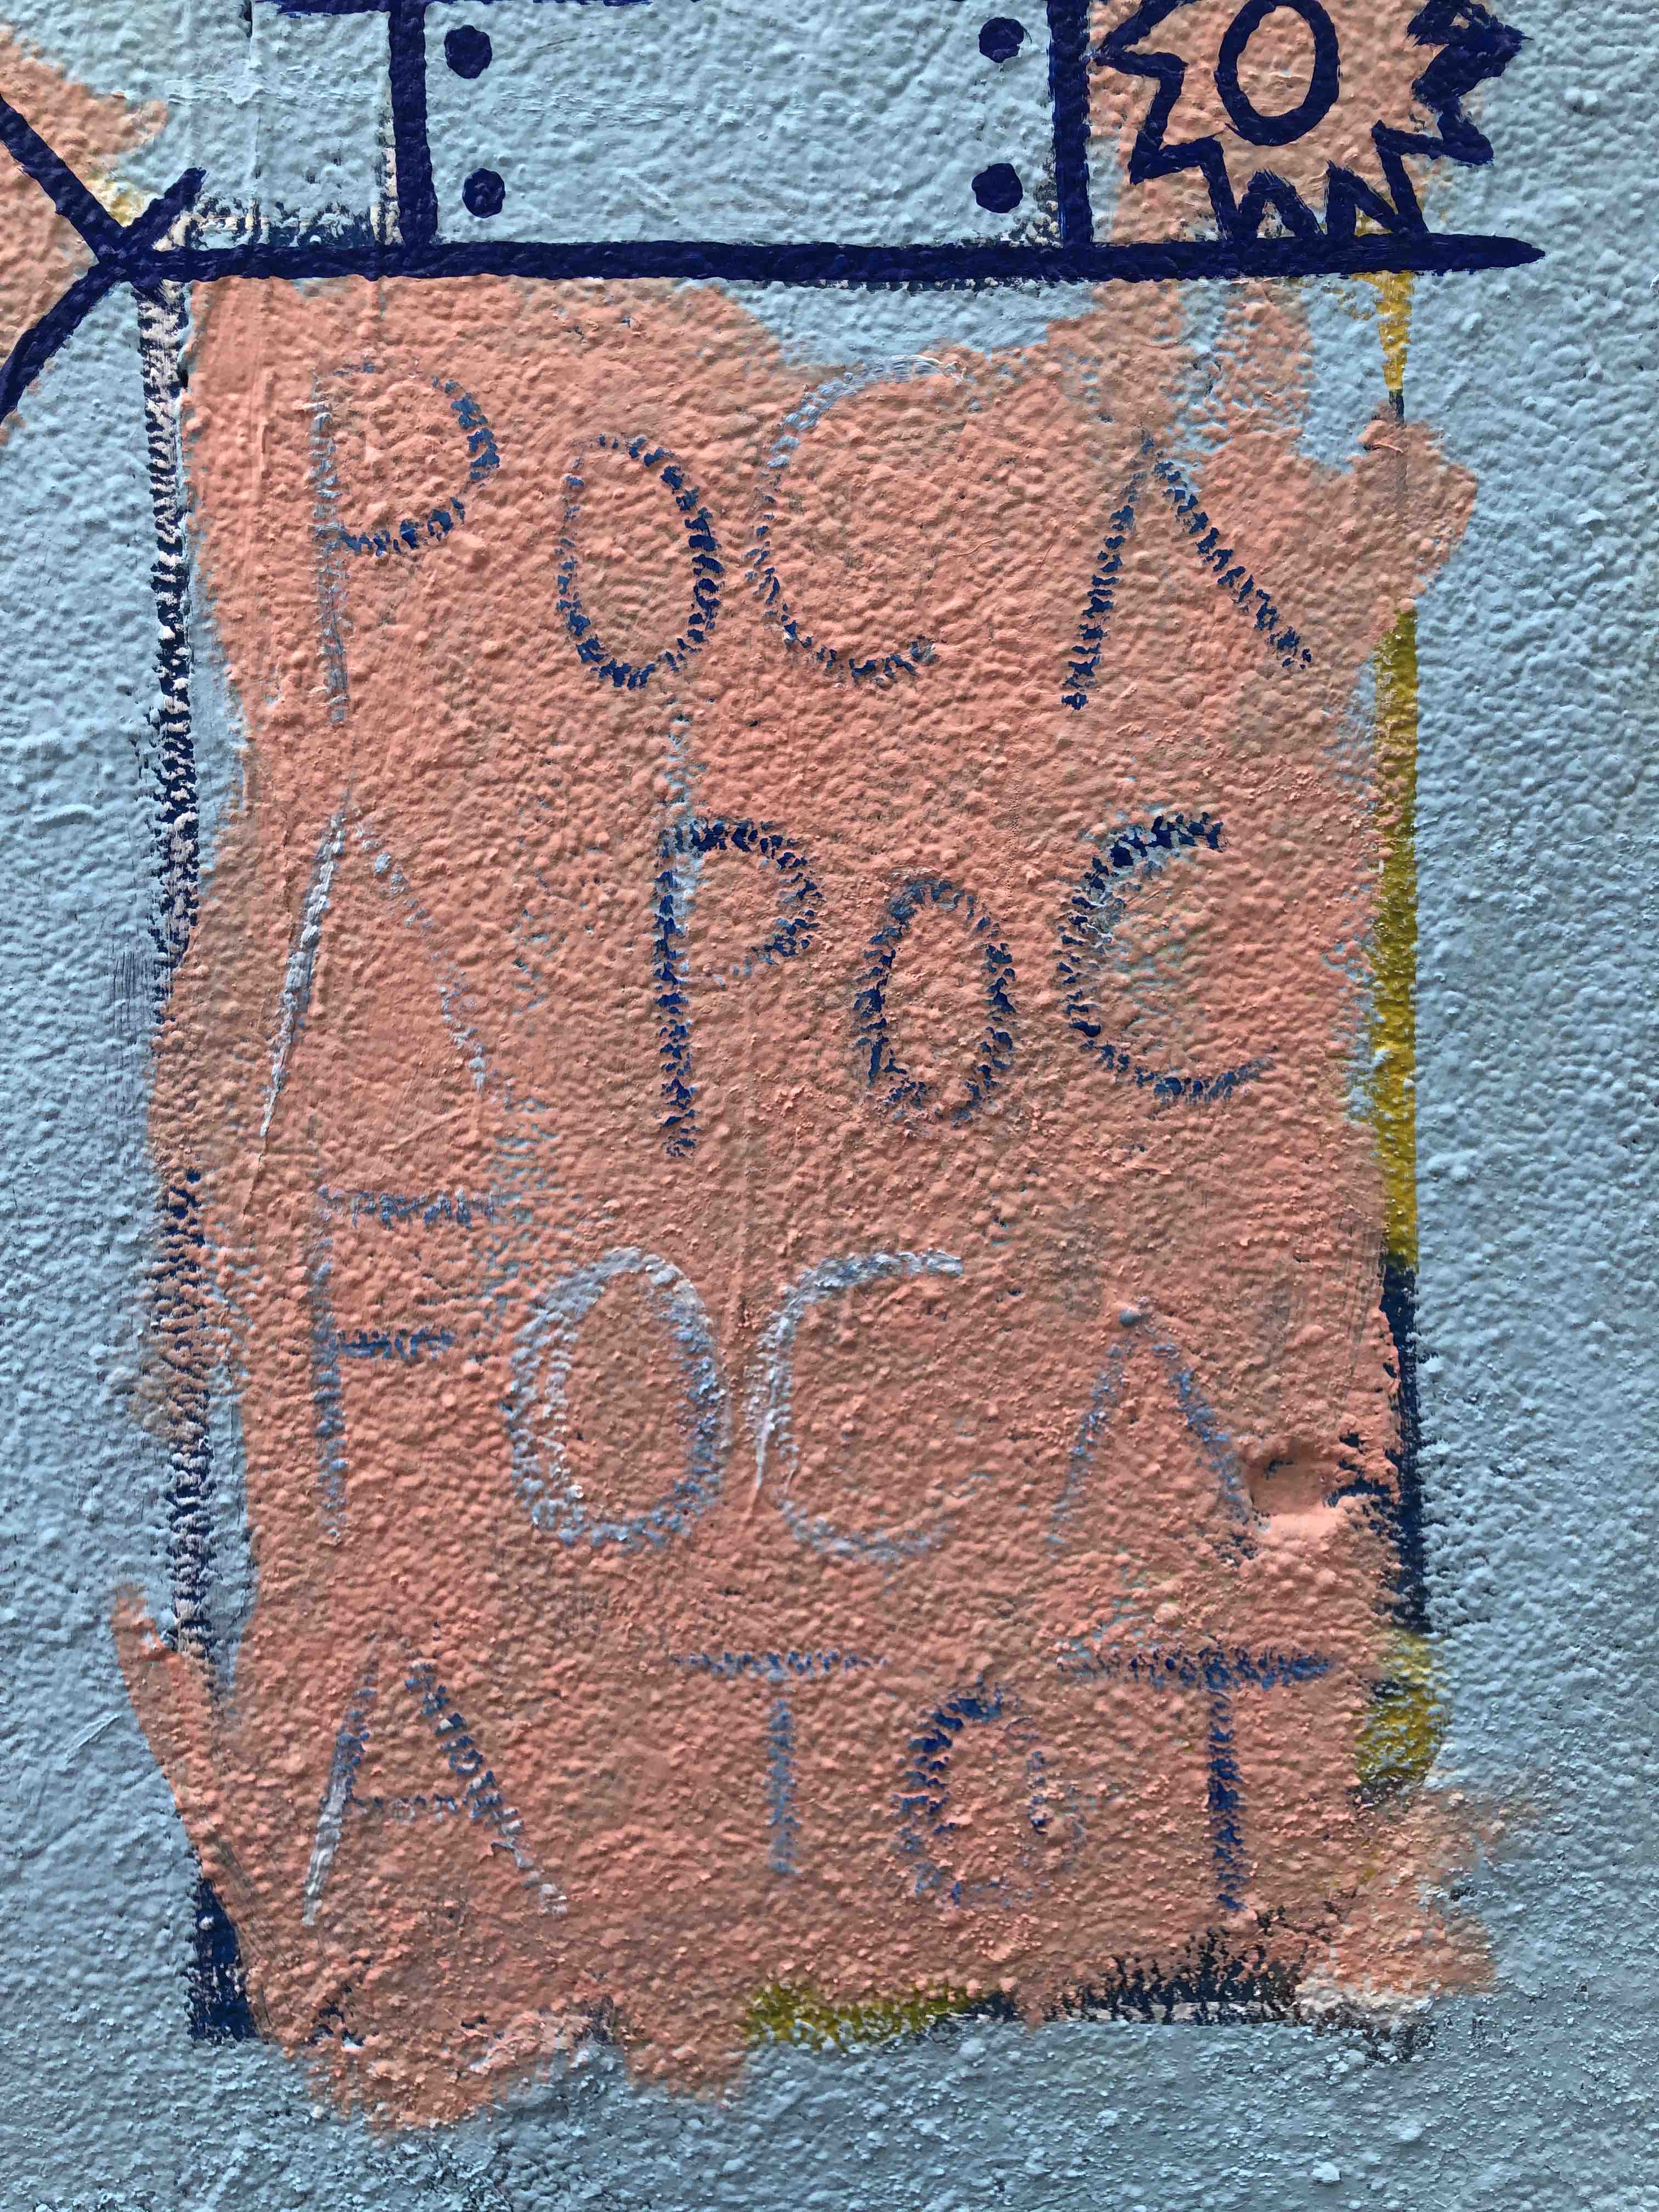 POCΛ
Λ POC
FOCΛ
A TGT